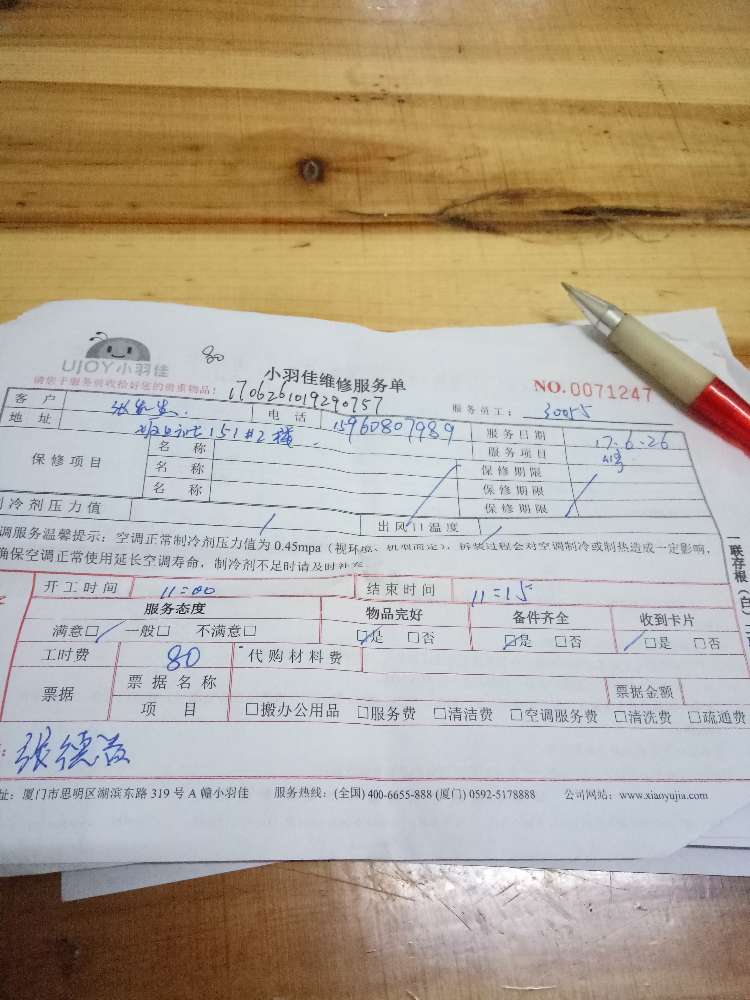 80
UJOY小羽佳
小羽佳维修服务单
NO.0071247
请您于服务前收拾好您的贵重物品:
1706261019290757
服务员工: 30055
客户 张先生 电话 15960807989 服务日期 17.6.26
地址 151#2楼 服务项目
保修项目 名称 保修期限
名称 保修期限
名称 保修期限
制冷剂压力值 出风口温度
调服务温馨提示:空调正常制冷剂压力值为 0.45mpa(视环境、机型而定),拆装过程会对空调制冷或制热造成一定影响,
确保空调正常使用延长空调寿命,制冷剂不足时请及时补充
开工时间 11:00 结束时间 11:15
服务态度 物品完好 备件齐全 收到卡片
满意□ 一般□ 不满意□ □是 □否 □是 □否 □是 □否
工时费 80 代购材料费
票据 票据名称 票据金额
项目 □搬办公用品 □服务费 □清洁费 □空调服务费 □清洗费 □疏通费
张德
址:厦门市思明区湖滨东路 319 号 A 幢小羽佳 服务热线:(全国) 400-6655-888 (厦门) 0592-5178888 公司网站:www.xiaoyujia.com
一联存根(白)